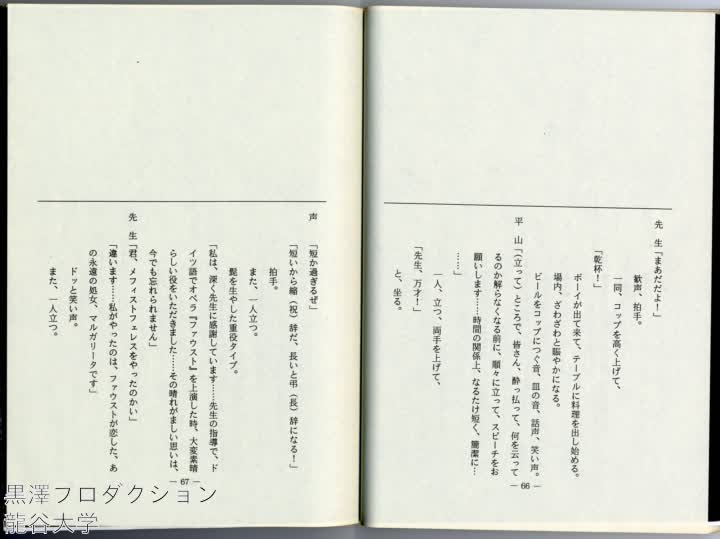 先　生「まあだだよ！」
歓声、拍手。
一同、コップを高く上げて、
「乾杯！」
ボーイが出て来て、テーブルに料理を出し始める。
場内、ざわざわと賑やかになる。
ビールをコップにつぐ音、皿の音、話声、笑い声。
平　山「（立って）ところで、皆さん、酔っ払って、何を云って
るのか解らなくなる前に、順々に立って、スピーチをお
願いします……時間の関係上、なるたけ短く、簡潔に…
……」
一人、立つ、両手を上げて、
「先生、万才！」
と、坐る。
― 66 ―
声　「短か過ぎるぜ」
「短いから縮（祝）辞だ、長いと弔（長）辞になる！」
拍手。
また、一人立つ。
髭を生やした重役タイプ。
「私は、深く先生に感謝しています……先生の指導で、ド
イツ語でオペラ『ファウスト』を上演した時、大変素晴
らしい役をいただきました……その晴れがましい思いは、
今でも忘れられません」
先　生「君、メフィストフェレスをやったのかい」
「違います……私がやったのは、ファウストが恋した、あ
の永遠の処女、マルガリータです」
ドッと笑い声。
また、一人立つ。
― 67 ―
黒澤プロダクション
龍谷大学